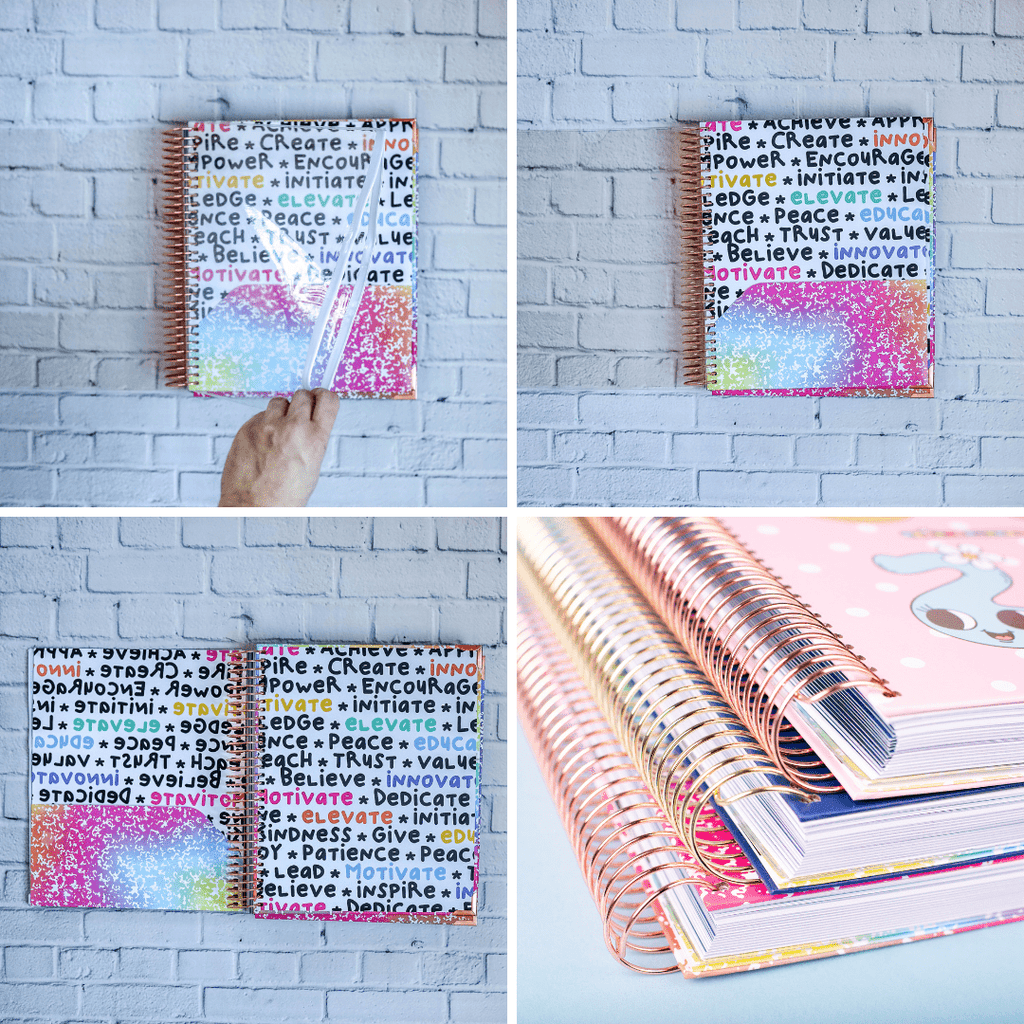 ATE * ACHIEVE * APPR
PIRE * CREATE * INNO
MPOWER * ENCOUR AGE
TIVATE * INITIATE * IN
LEDGE * ELEVATE * LE
ENCE * PEACE * EDUCA
EACH * TRUST * VALUE
* BELIEVE * INNOVATE
MOTIVATE * DEDICATE
VE *
ATE * ACHIEVE * APPR
PIRE * CREATE * INNO
MPOWER * ENCOURAGE
TIVATE * INITIATE * IN
LEDGE * ELEVATE * LE
ENCE * PEACE * EDUCA
EACH * TRUST * VALUE
* BELIEVE * INNOVATE
MOTIVATE * DEDICATE
VE *
ATE * ACHIEVE * APPR
PIRE * CREATE * INNO
MPOWER * ENCOURAGE
TIVATE * INITIATE * IN
LEDGE * ELEVATE * LE
ENCE * PEACE * EDUCA
EACH * TRUST * VALUE
BELIEVE * INNOVATE
MOTIVATE * DEDICATE
PIRE * CREATE * INNO
MPOWER * ENCOURAGE
TIVATE * INITIATE * IN
LEDGE * ELEVATE * LE
ENCE * PEACE * EDUCA
EACH * TRUST * VALUE
* BELIEVE * INNOVAT
MOTIVATE * DEDICATE
VE * ELEVATE * INITIA
KINDNESS * GIVE * EDU
OY * PATIENCE * PEAC
* LEAD * MOTIVATE * T
BELIEVE * INSPIRE * IN
TIVATE * DEDICATE * E